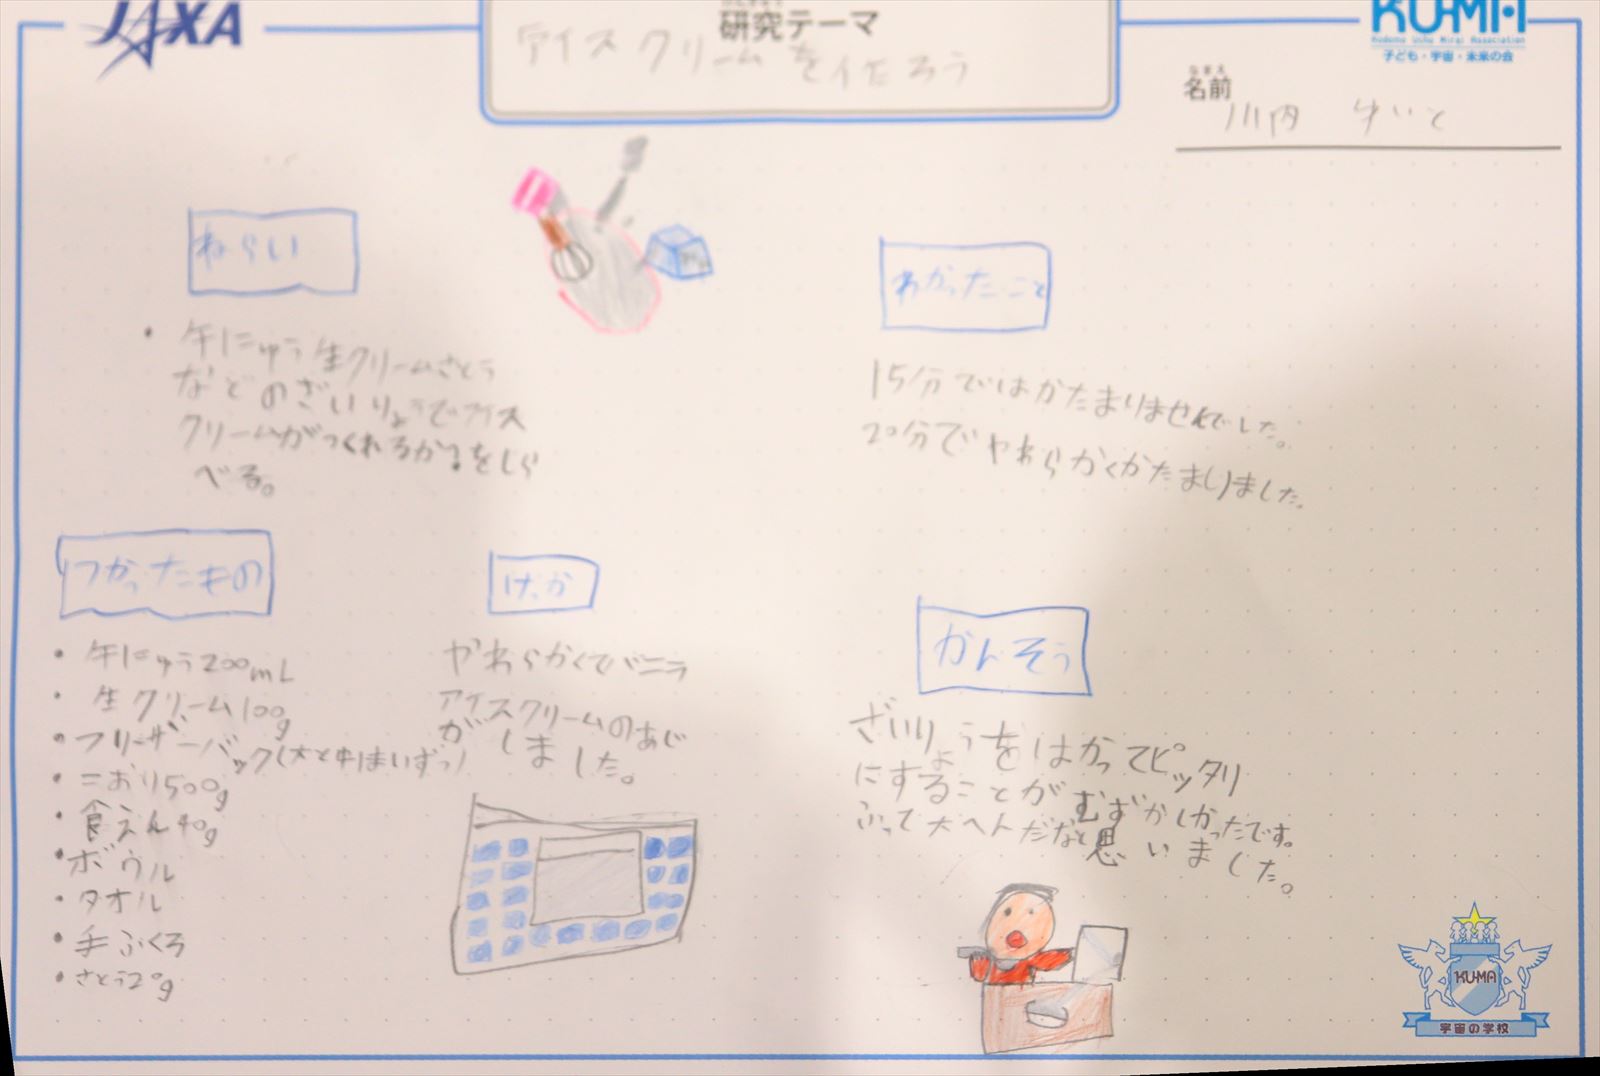 JAXA
研究テーマ
アイスクリームを作ろう
KU-MA
Kodomo Uchu Mirai Association
子ども・宇宙・未来の会
なまえ
名前
川内 ゆいと
ねらい
・牛にゅう生クリームさとう
などのざいりょうでアイス
クリームがつくれるか?をしら
べる。
つかったもの
・牛にゅう200mL
・生クリーム100g
・フリーザーバック(大と中1まいずつ)
・こおり500g
・食えん40g
・ボウル
・タオル
・手ふくろ
・さとう20g
けっか
やわらかくてバニラ
アイスクリームのあじ
がしました。
わかったこと
15分ではかたまりませんでした。
20分でやわらかくかたまりました。
かんそう
ざいりょうをはかってピッタリ
にすることがむずかしかったです。
ふって大へんだなと思いました。
KU-MA
宇宙の学校